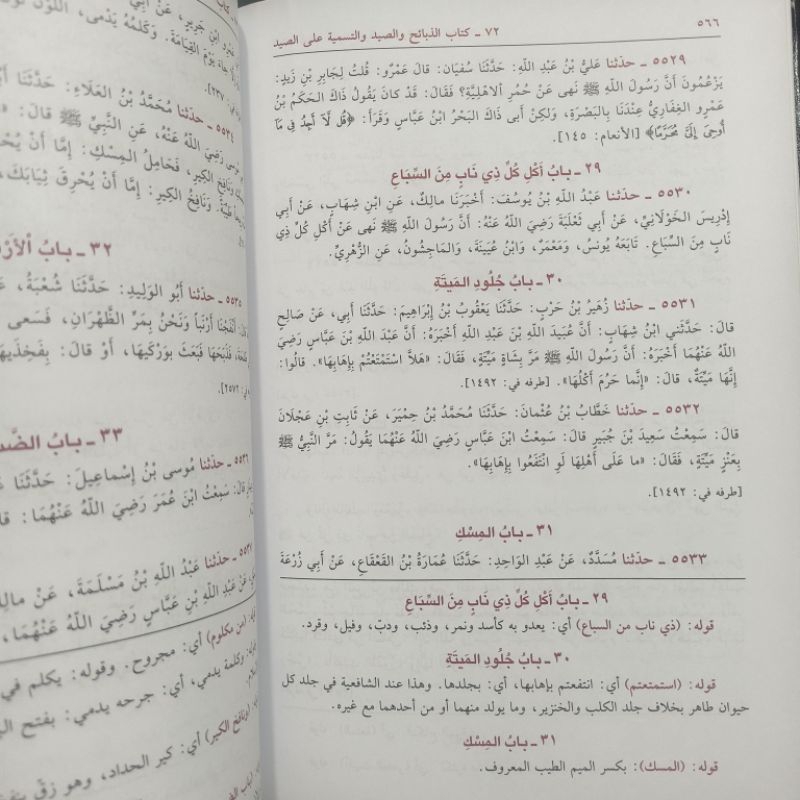 ٥٦٦
٧٢ ـ كتاب الذبائح والصيد والتسمية على الصيد
٥٥٢٩ ـ حدّثنا عَليُّ بْنُ عَبْدِ اللّهِ: حَدَّثَنَا سُفيَان: قالَ عَمْرٌو: قُلتُ لِجَابِرِ بْنِ زَيدٍ:
يَزْعُمُونَ أَنَّ رَسُولَ اللّهِ ﷺ نَهى عَنْ حُمُرِ الاهْلِيَّةِ؟ فَقَالَ: قَدْ كانَ يَقُولُ ذَاكَ الحَكَمُ بْنُ
عَمْرٍو الغِفَارِيُّ عِنْدَنَا بِالبَصْرَةِ، وَلكِنْ أَبى ذَاكَ البَحْرُ ابْنُ عَبَّاسٍ وَقَرَأَ: ﴿قُل لَّآ أَجِدُ فِى مَآ
أُوحِىَ إِلَىَّ مُحَرَّمًا﴾ [الأنعام: ١٤٥].
٢٩ ـ بابُ أَكْلِ كُلِّ ذِي نَابٍ مِنَ السِّبَاعِ
٥٥٣٠ ـ حدّثنا عَبْدُ اللّهِ بْنُ يُوسُفَ: أَخْبَرَنَا مالِكٌ، عَنِ ابْنِ شِهَابٍ، عَنْ أَبِي
إِدْرِيسَ الخَوْلَانِيِّ، عَنْ أَبِي ثَعْلَبَةَ رَضِيَ اللّهُ عَنْهُ: أَنَّ رَسُولَ اللّهِ ﷺ نَهى عَنْ أَكْلِ كُلِّ ذِي
نَابٍ مِنَ السِّبَاعِ. تَابَعَهُ يُونُسُ، وَمَعْمَرٌ، وَابْنُ عُيَينَةَ، وَالمَاجِشُونُ، عَنِ الزُّهْرِيِّ.
٣٠ ـ بابُ جُلُودِ المَيتَةِ
٥٥٣١ ـ حدّثنا زُهَيرُ بْنُ حَرْبٍ: حَدَّثَنَا يَعْقُوبُ بْنُ إِبْرَاهِيمَ: حَدَّثَنَا أَبِي، عَنْ صَالِحٍ
قالَ: حَدَّثَنِي ابْنُ شِهَابٍ: أَنَّ عُبَيدَ اللّهِ بْنَ عَبْدِ اللّهِ أَخْبَرَهُ: أَنَّ عَبْدَ اللّهِ بْنَ عَبَّاسٍ رَضِيَ
اللّهُ عَنْهُمَا أَخْبَرَهُ: أَنَّ رَسُولَ اللّهِ ﷺ مَرَّ بِشَاةٍ مَيِّتَةٍ، فَقَالَ: «هَلاَّ اسْتَمْتَعْتُمْ بِإِهَابِهَا». قالُوا:
إِنَّهَا مَيِّتَةٌ، قالَ: «إِنَّما حَرُمَ أَكْلُهَا». [طرفه في: ١٤٩٢].
٥٥٣٢ ـ حدّثنا خَطَّابُ بْنُ عُثْمَانَ: حَدَّثَنَا مُحَمَّدُ بْنُ حِمْيَرَ، عَنْ ثَابِتِ بْنِ عَجْلَانَ
قالَ: سَمِعْتُ سَعِيدَ بْنَ جُبَيرٍ قالَ: سَمِعْتُ ابْنَ عَبَّاسٍ رَضِيَ اللّهُ عَنْهُمَا يَقُولُ: مَرَّ النَّبِيُّ ﷺ
بِعَنْزٍ مَيِّتَةٍ، فَقَالَ: «ما عَلَى أَهْلِهَا لَوِ انْتَفَعُوا بِإِهَابِهَا».
[طرفه في: ١٤٩٢].
٣١ ـ بابُ المِسْكِ
٥٥٣٣ ـ حدّثنا مُسَدَّدٌ، عَنْ عَبْدِ الوَاحِدِ: حَدَّثَنَا عُمَارَةُ بْنُ القَعْقَاعِ، عَنْ أَبِي زُرْعَةَ
٢٩ ـ بابُ أَكْلِ كُلِّ ذِي نَابٍ مِنَ السِّبَاعِ
قوله: (ذي ناب من السباع) أي: يعدو به كأسد ونمر، وذئب، ودبّ، وفيل، وقرد.
٣٠ ـ بابُ جُلُودِ المَيتَةِ
قوله: (استمتعتم) أي: انتفعتم بإهابها، أي: بجلدها. وهذا عند الشافعية في جلد كل
حيوان طاهر بخلاف جلد الكلب والخنزير، وما يولد منهما أو من أحدهما مع غيره.
٣١ ـ بابُ المِسْكِ
قوله: (المسك): بكسر الميم الطيب المعروف.
ابْنِ جَرِيرٍ، عَنْ أَبِي
يَوْمَ القِيَامَةِ. وَكَلْمُهُ يَدْمى، اللَّوْنُ
٥٥٣٤ ـ حدّثنا مُحَمَّدُ بْنُ العَلَاءِ: حَدَّثَنَا
رَضِيَ اللّهُ عَنْهُ، عَنِ النَّبِيِّ ﷺ قالَ:
وَنَافِخِ الكِيرِ، فَحَامِلُ المِسْكِ: إِمَّا أَنْ
طَيِّبَةً. وَنَافِخُ الكِيرِ: إِمَّا أَنْ يُحْرِقَ ثِيَابَكَ،
٣٢ ـ بابُ
٥٥٣٥ ـ حدّثنا أَبُو الوَلِيدِ: حَدَّثَنَا شُعْبَةُ،
أَنْفَجْنَا أَرْنَباً وَنَحْنُ بِمَرِّ الظَّهْرَانِ، فَسَعى
فَذَبَحَهَا فَبَعَثَ بِوَرِكَيهَا، أَوْ قالَ: بِفَخِذَيهَا
٢٥٧٢].
٣٣ ـ بابُ
حدّثنا مُوسى بْنُ إِسْماعِيلَ: حَدَّثَنَا
قالَ: سَمِعْتُ ابْنَ عُمَرَ رَضِيَ اللّهُ عَنْهُمَا:
حدّثنا عَبْدُ اللّهِ بْنُ مَسْلَمَةَ، عَنْ
عَنْ عَبْدِ اللّهِ بْنِ عَبَّاسٍ رَضِيَ اللّهُ عَنْهُمَا،
(من مكلوم) أي: مجروح. وقوله: يكلم في
وكلمه يدمي، أي: جرحه يدمي: بفتح
(ونافخ الكير) أي: كير الحداد، وهو زقّ